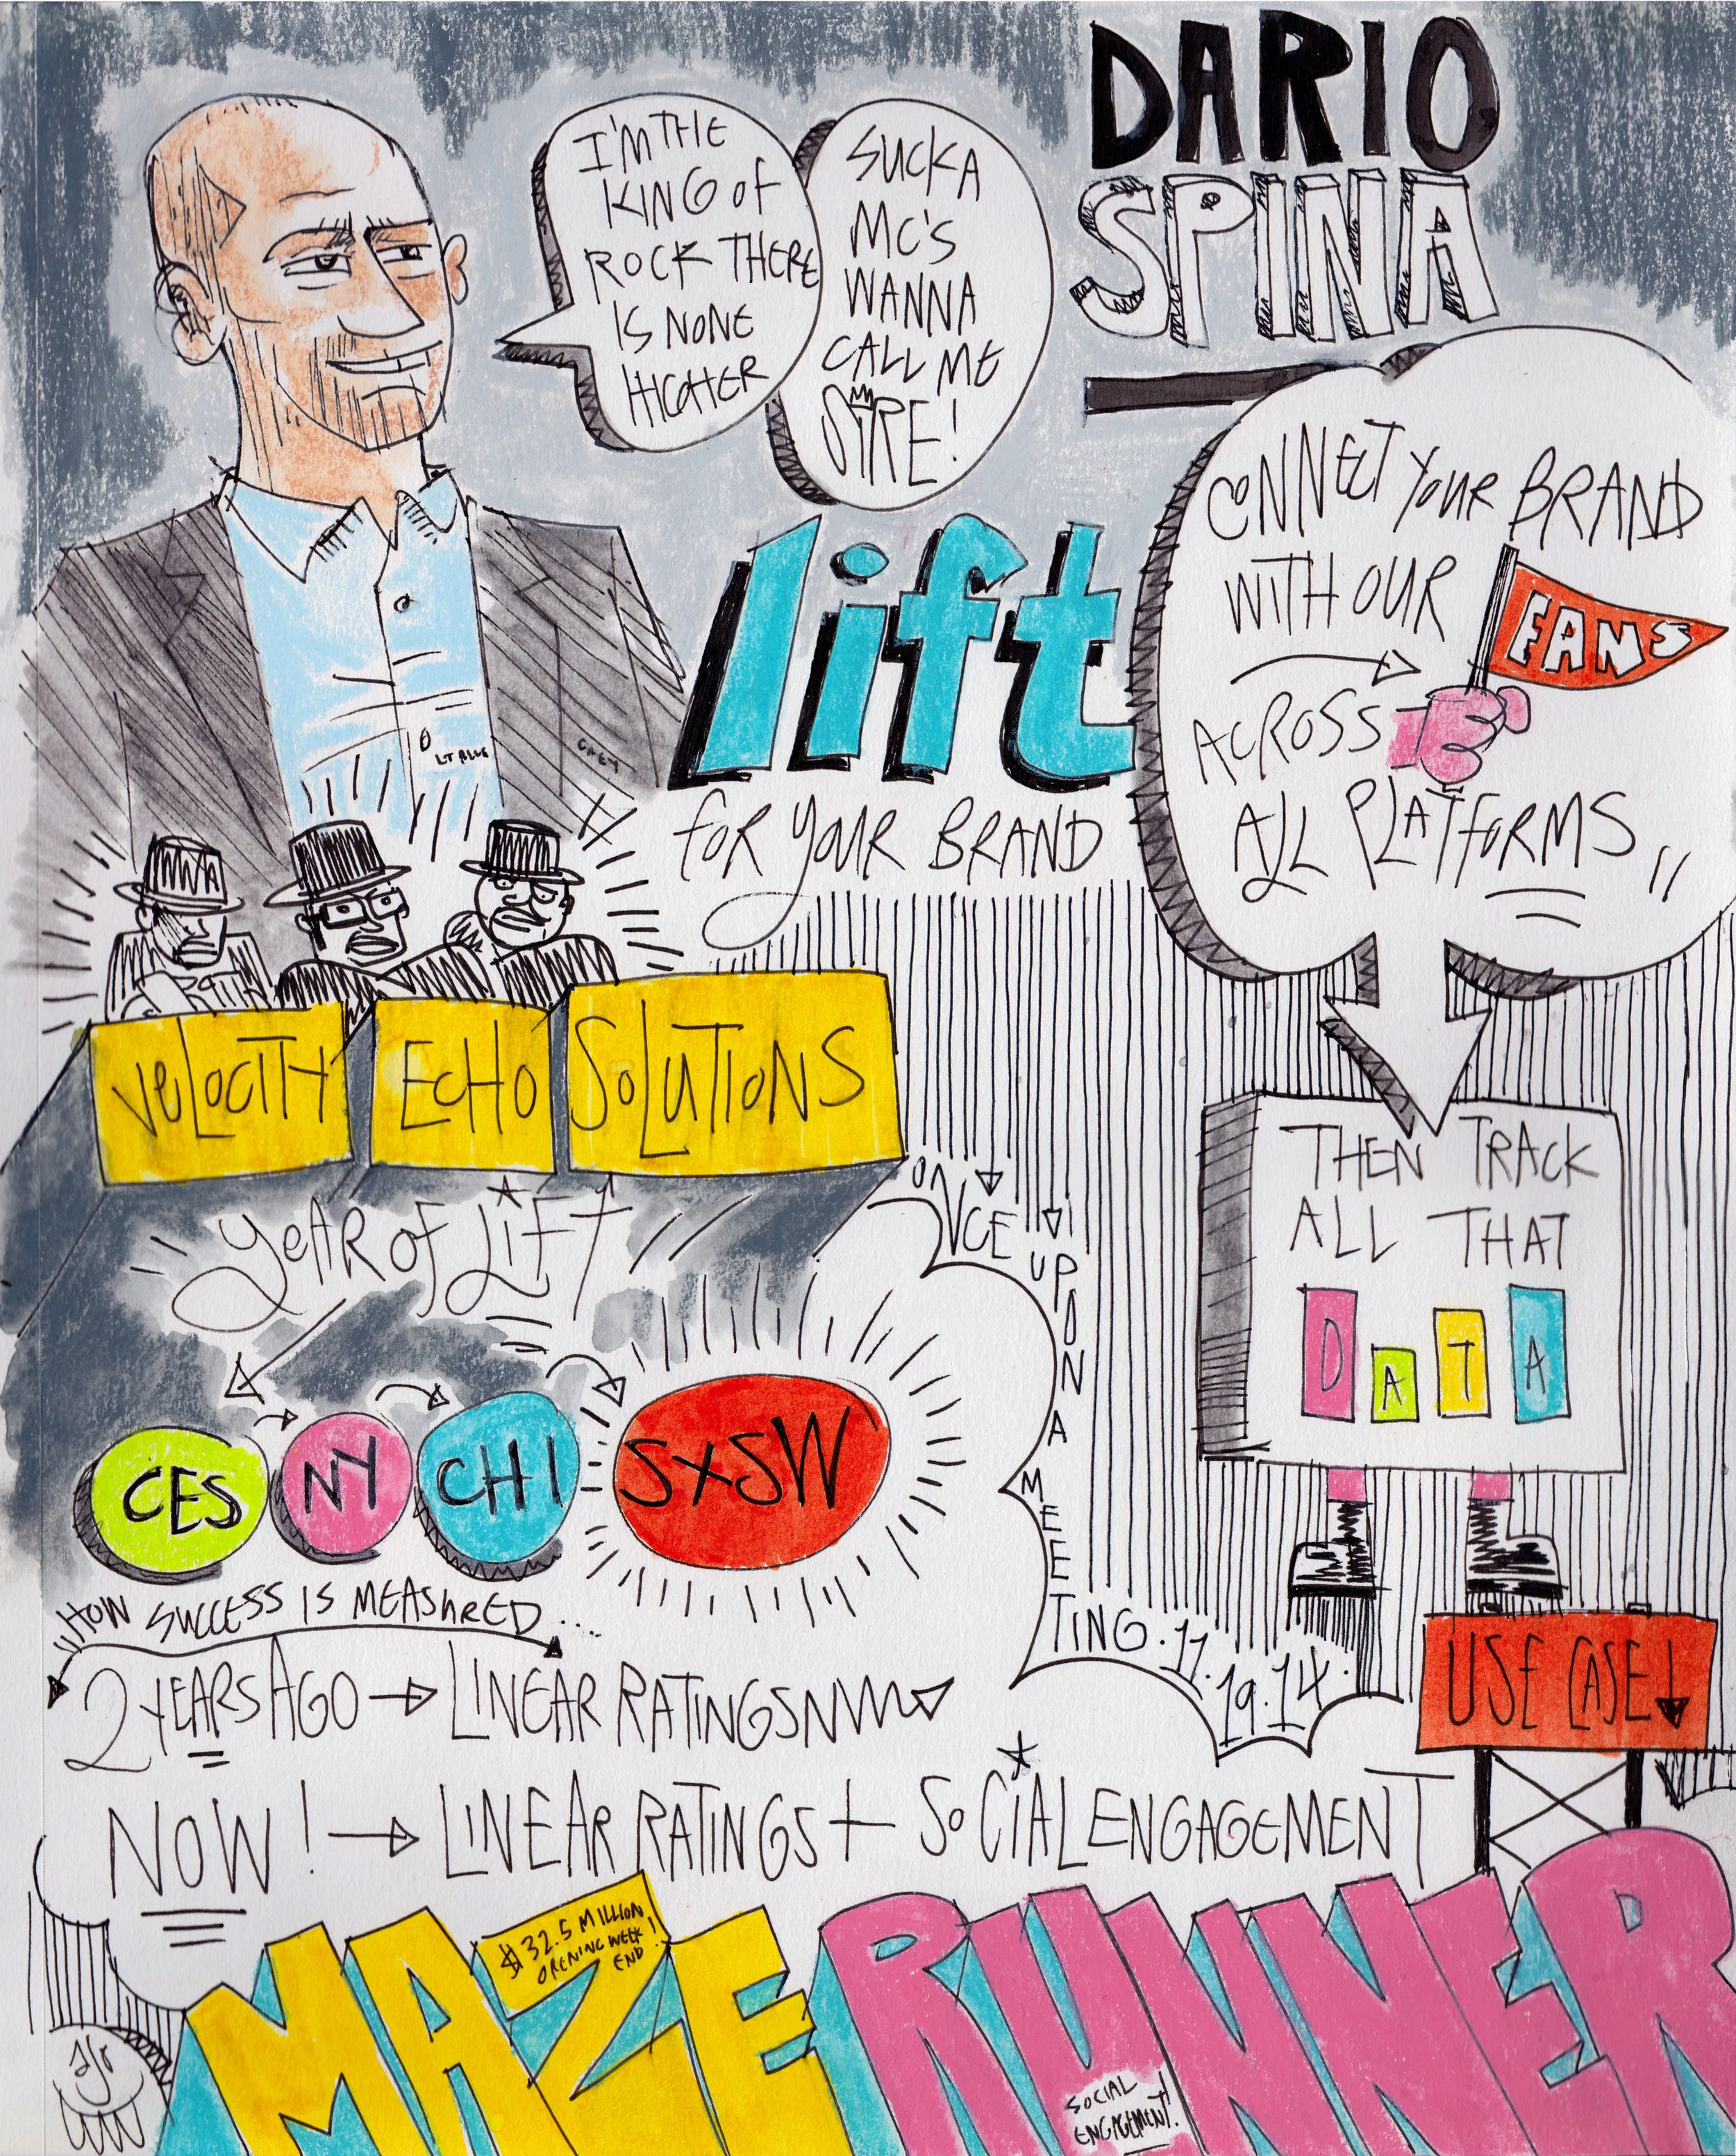 DARIO
SPINA
I'M THE
KING OF
ROCK THERE
IS NONE
HIGHER
SUCKA
MC'S
WANNA
CALL ME
SIRE!
CONNECT YOUR BRAND
WITH OUR
FANS
ACROSS
ALL PLATFORMS
lift
FOR YOUR BRAND
LT BLUE
GREY
VELOCITY
ECHO
SOLUTIONS
THEN TRACK
ALL THAT
DATA
YEAR OF LIFT
ONCE UPON A MEETING. 11.19.14.
CES
NY
CHI
SXSW
HOW SUCCESS IS MEASURED....
2 YEARS AGO → LINEAR RATINGS
USE CASE ↓
NOW! → LINEAR RATINGS + SOCIAL ENGAGEMENT
$32.5 MILLION
OPENING WEEK
END!
MAZE RUNNER
SOCIAL
ENGAGEMENT!